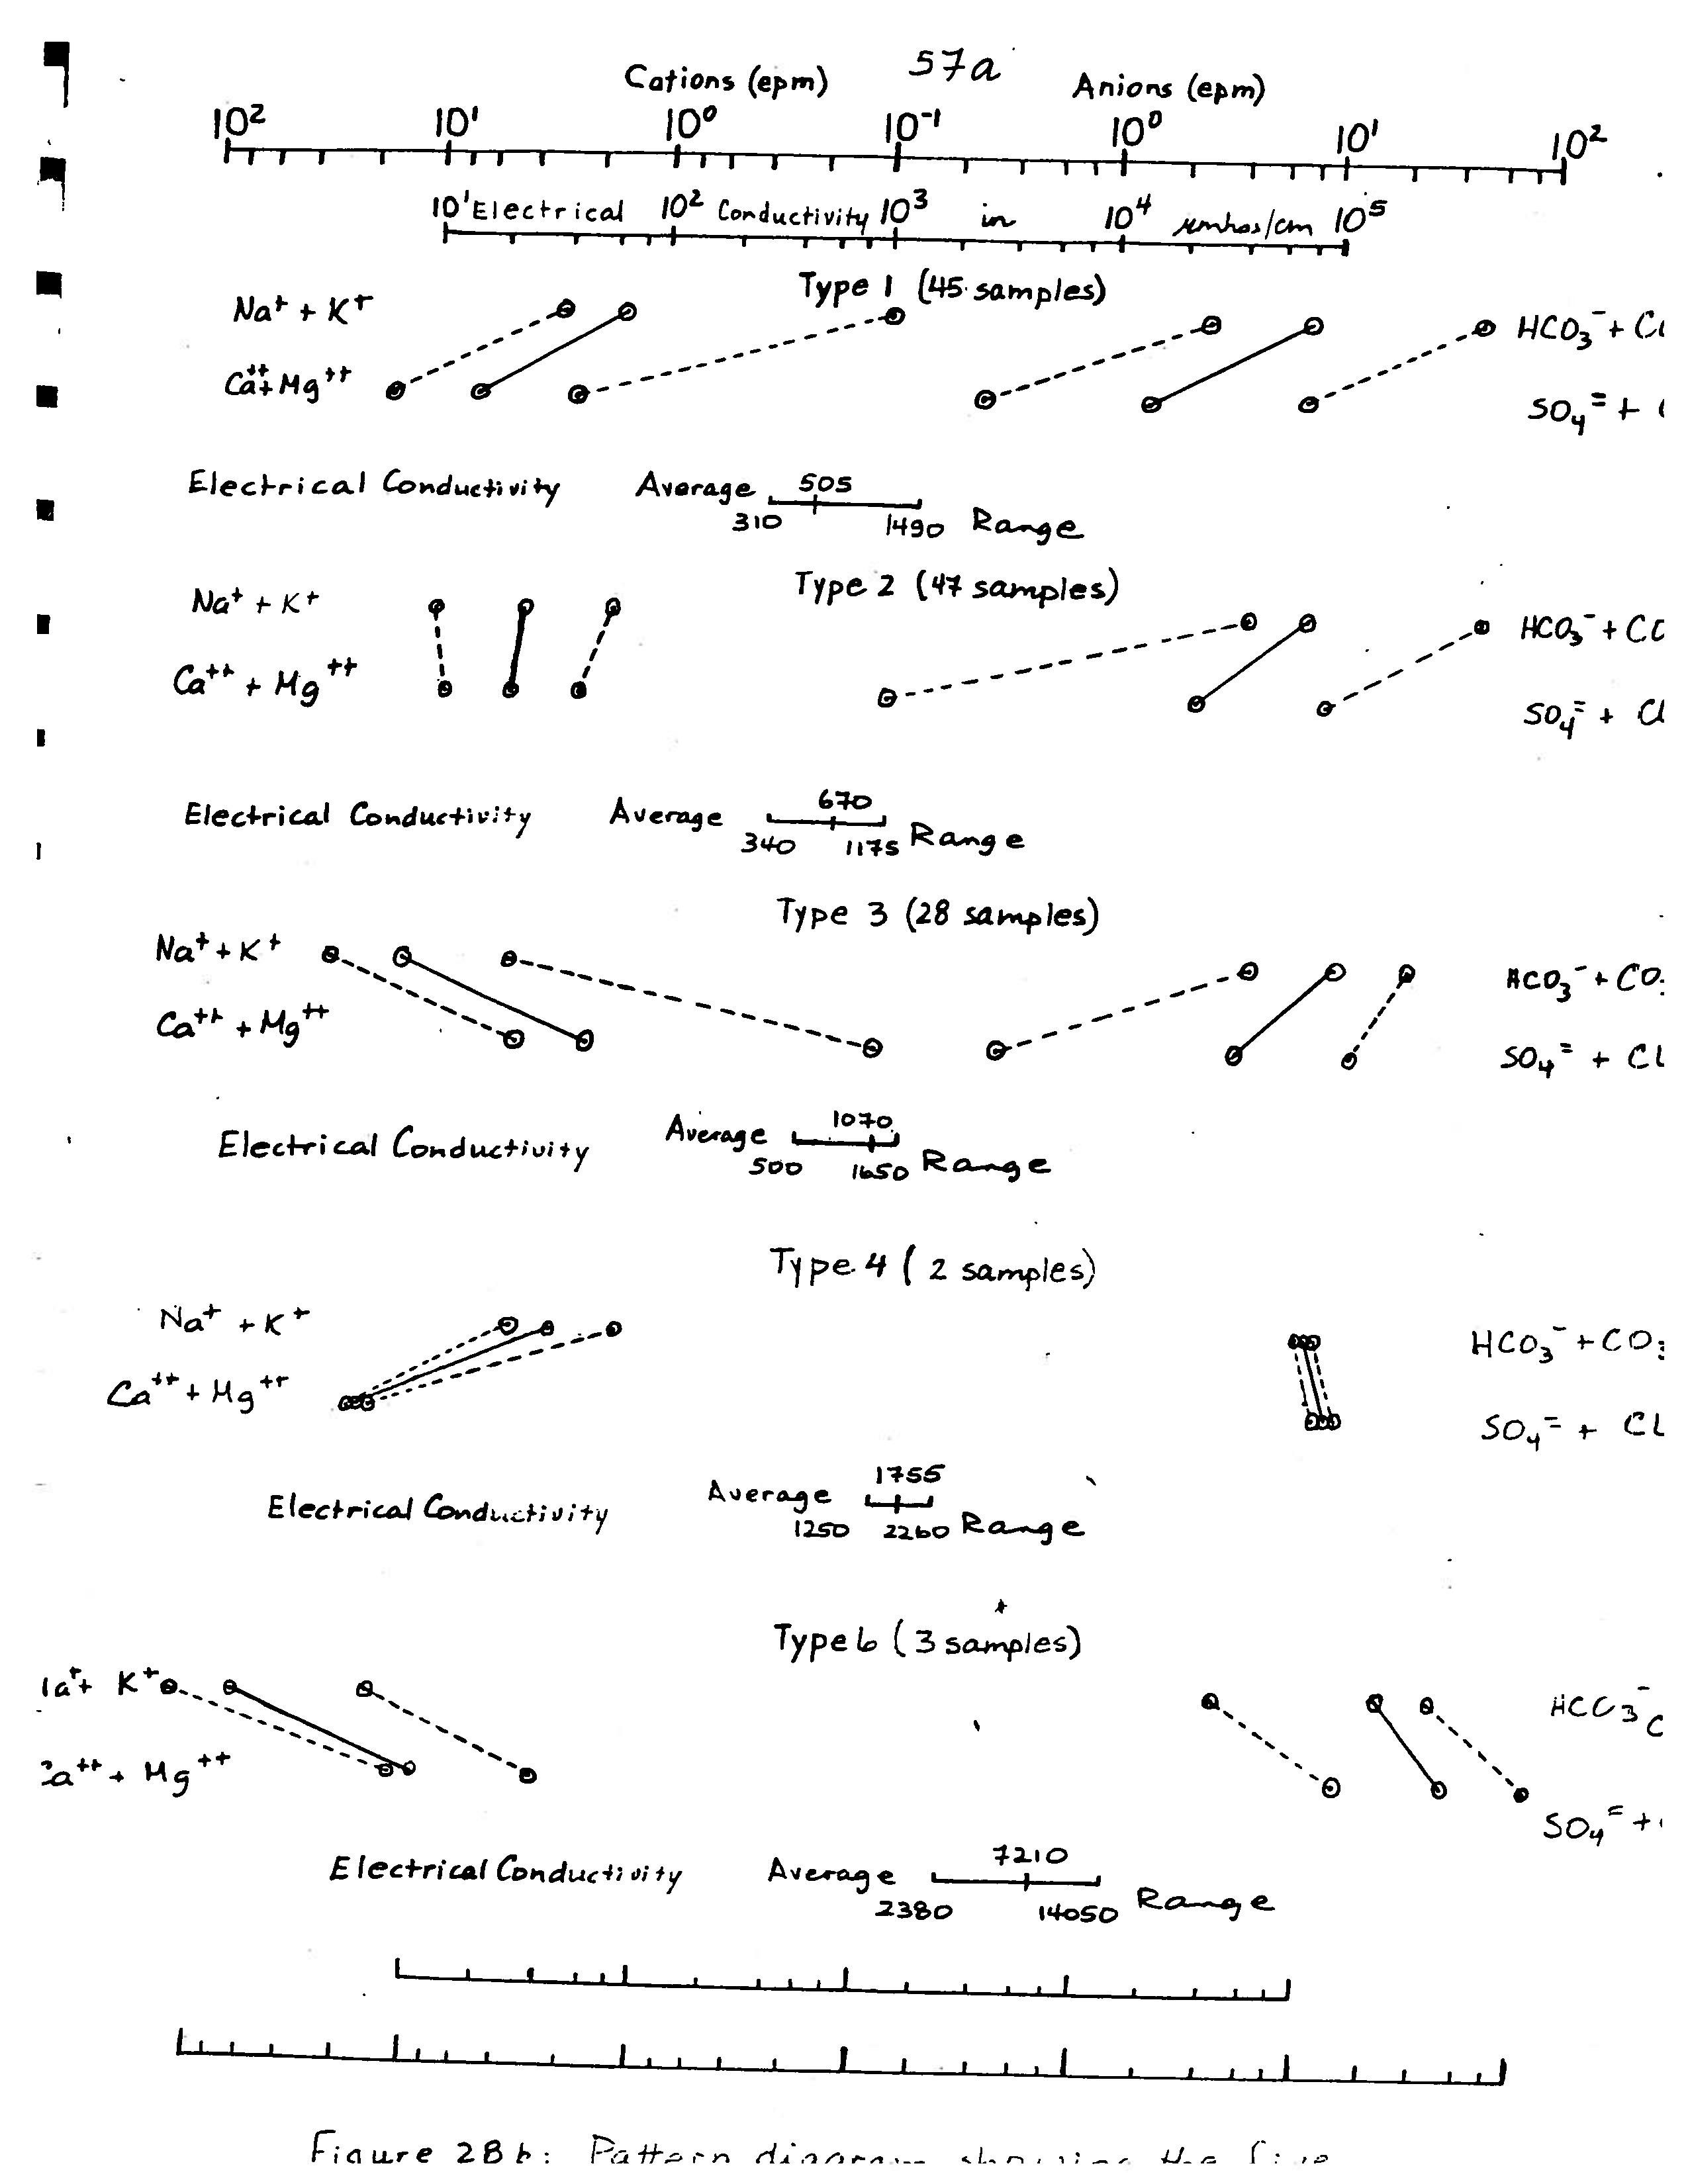 57a
Cations (epm) Anions (epm)
10² 10¹ 10⁰ 10⁻¹ 10⁰ 10¹ 10²
10¹ Electrical 10² Conductivity 10³ in 10⁴ µmhos/cm 10⁵
Type 1 (45 samples)
Na⁺ + K⁺ HCO₃⁻ + C
Ca⁺⁺ + Mg⁺⁺ SO₄⁼ +
Electrical Conductivity Average 505
310 1490 Range
Type 2 (47 samples)
Na⁺ + K⁺ HCO₃⁻ + CC
Ca⁺⁺ + Mg⁺⁺ SO₄⁼ + Cl
Electrical Conductivity Average 670
340 1175 Range
Type 3 (28 samples)
Na⁺ + K⁺ HCO₃⁻ + CO₃
Ca⁺⁺ + Mg⁺⁺ SO₄⁼ + Cl
Electrical Conductivity Average 1070
500 1650 Range
Type 4 (2 samples)
Na⁺ + K⁺ HCO₃⁻ + CO₃
Ca⁺⁺ + Mg⁺⁺ SO₄⁼ + Cl
Electrical Conductivity Average 1755
1250 2260 Range
Type 6 (3 samples)
a⁺ + K⁺ HCO₃⁻ C
a⁺⁺ + Mg⁺⁺ SO₄⁼ +
Electrical Conductivity Average 7210
2380 14050 Range
Figure 28b: Pattern diagram showing the five